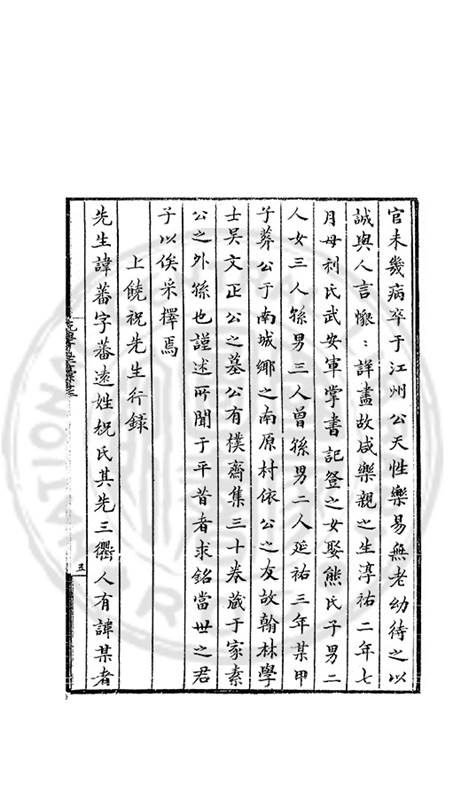 官未幾病卒于江州公天性樂易無老幼待之以
誠與人言懷﹕詳盡故咸樂親之生淳祐二年七
月母利氏武安軍掌書記登之女娶熊氏子男二
人女三人孫男三人曾孫男二人延祐三年某甲
子葬公于南城鄉之南原村依公之友故翰林學
士吳文正公之墓公有樸齋集三十卷藏于家素
公之外孫也謹述所聞于平昔者求銘當世之君
子以俟采擇焉
上饒祝先生行錄
先生諱蕃字蕃遠姓祝氏其先三衢人有諱某者
五